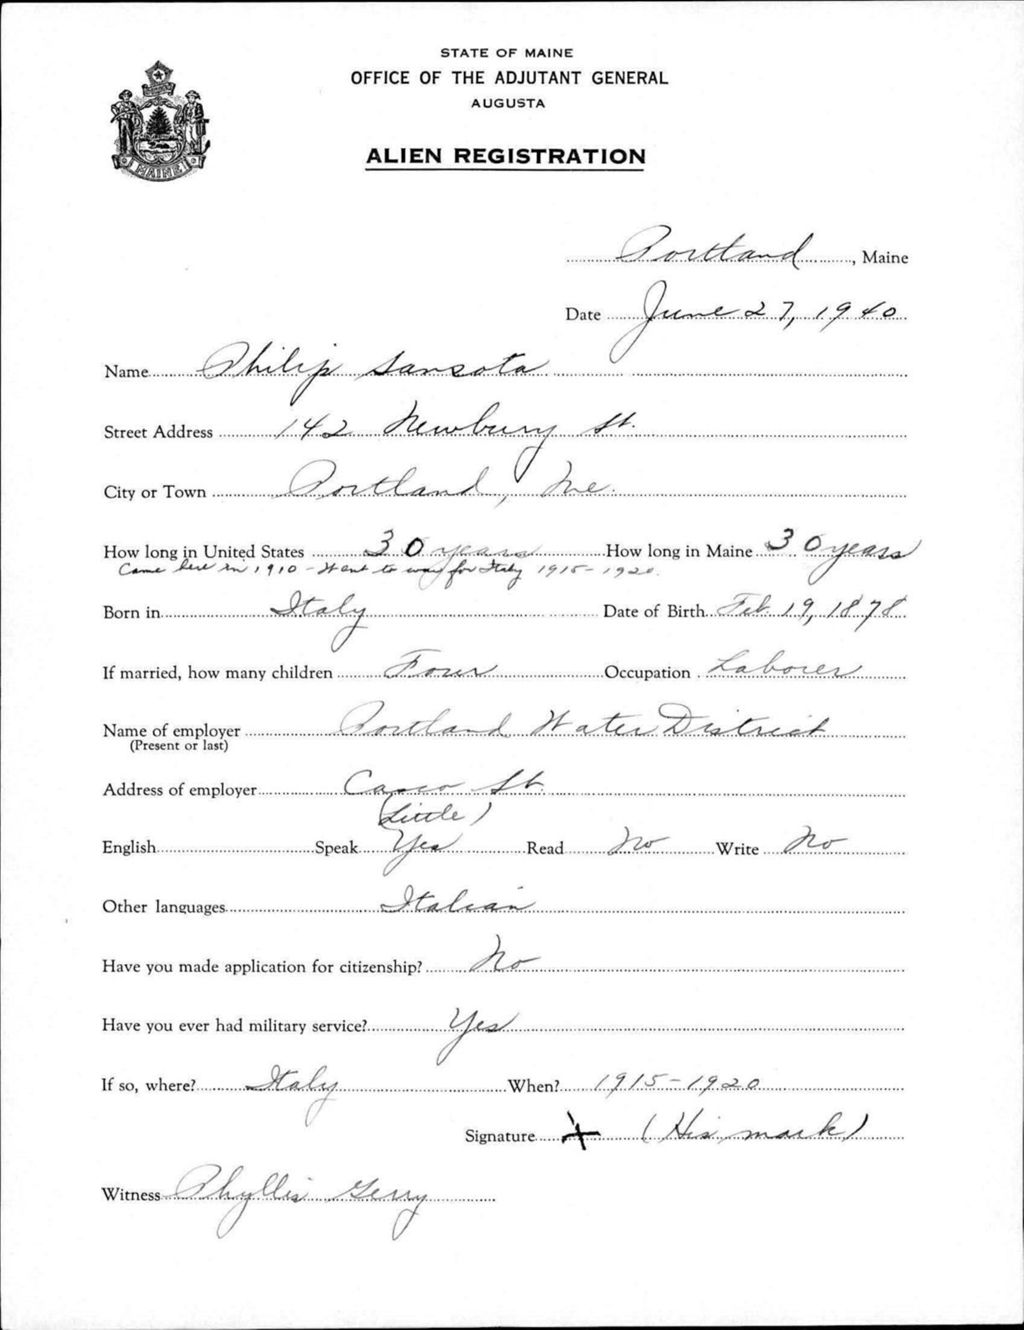 STATE OF MAINE
OFFICE OF THE ADJUTANT GENERAL
AUGUSTA
ALIEN REGISTRATION
MAINE
Portland, Maine
Date June 27, 1940
Name Philip Sansota
Street Address 142 Newbury St.
City or Town Portland, Me.
How long in United States 30 years How long in Maine 30 years
Came here in 1910 - Went to war for Italy 1915-1920.
Born in Italy Date of Birth Feb. 19, 1878
If married, how many children Four Occupation Laborer
Name of employer Portland Water District
(Present or last)
Address of employer Casco St.
(Little)
English Speak Yes Read No Write No
Other languages Italian
Have you made application for citizenship? No
Have you ever had military service? Yes
If so, where? Italy When? 1915-1920
Signature X (His mark)
Witness Phyllis Gerry